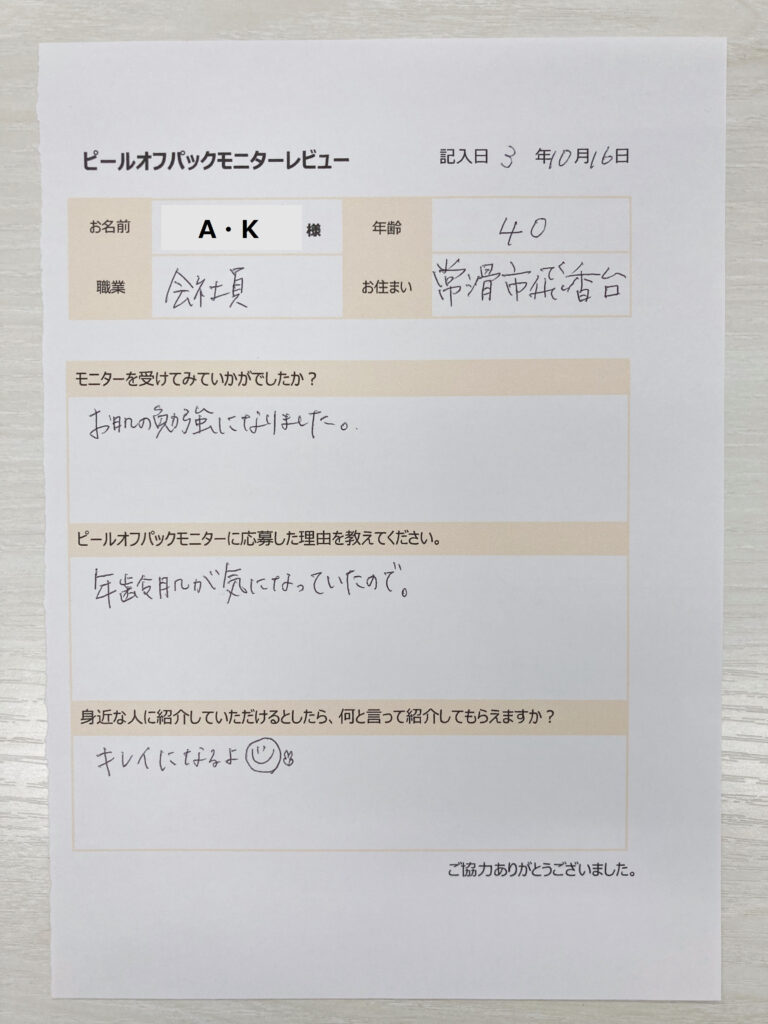 ピールオフパックモニターレビュー
記入日 3 年10月16日
お名前 A・K 様 年齢 40
職業 会社員 お住まい 常滑市飛香台
モニターを受けてみていかがでしたか？
お肌の勉強になりました。
ピールオフパックモニターに応募した理由を教えてください。
年齢肌が気になっていたので。
身近な人に紹介していただけるとしたら、何と言って紹介してもらえますか？
キレイになるよ
ご協力ありがとうございました。